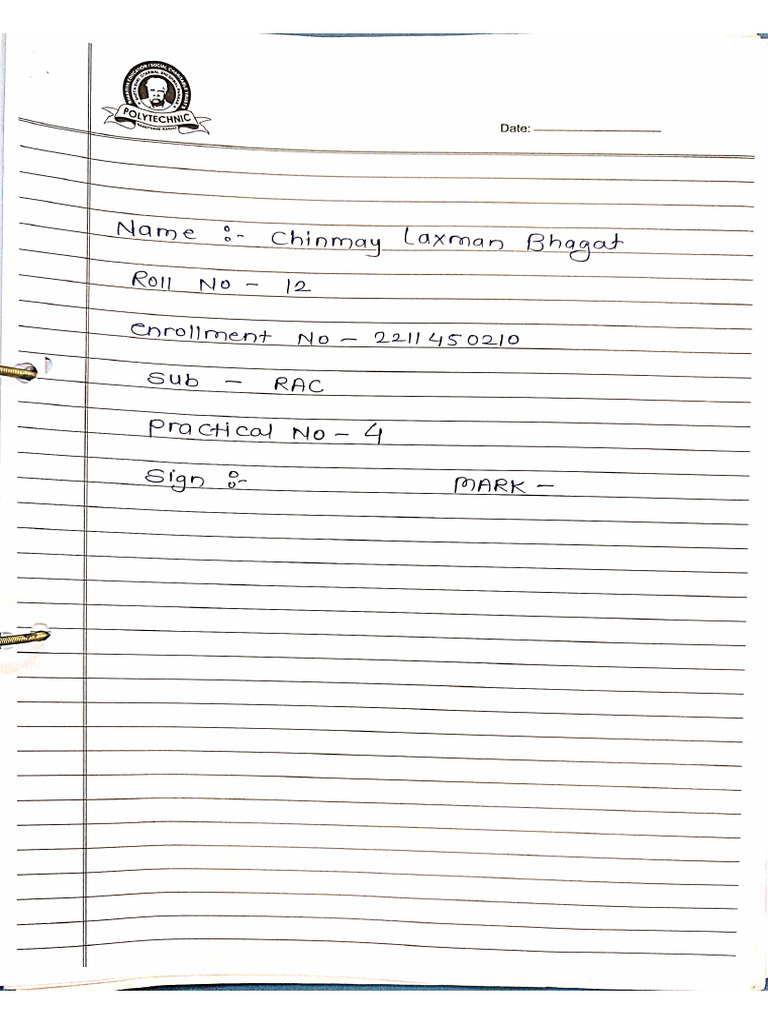 POLYTECHNIC
Date:
Name :- Chinmay Laxman Bhagat
Roll No - 12
Enrollment No - 2211450210
Sub - RAC
Practical No - 4
Sign :- MARK -